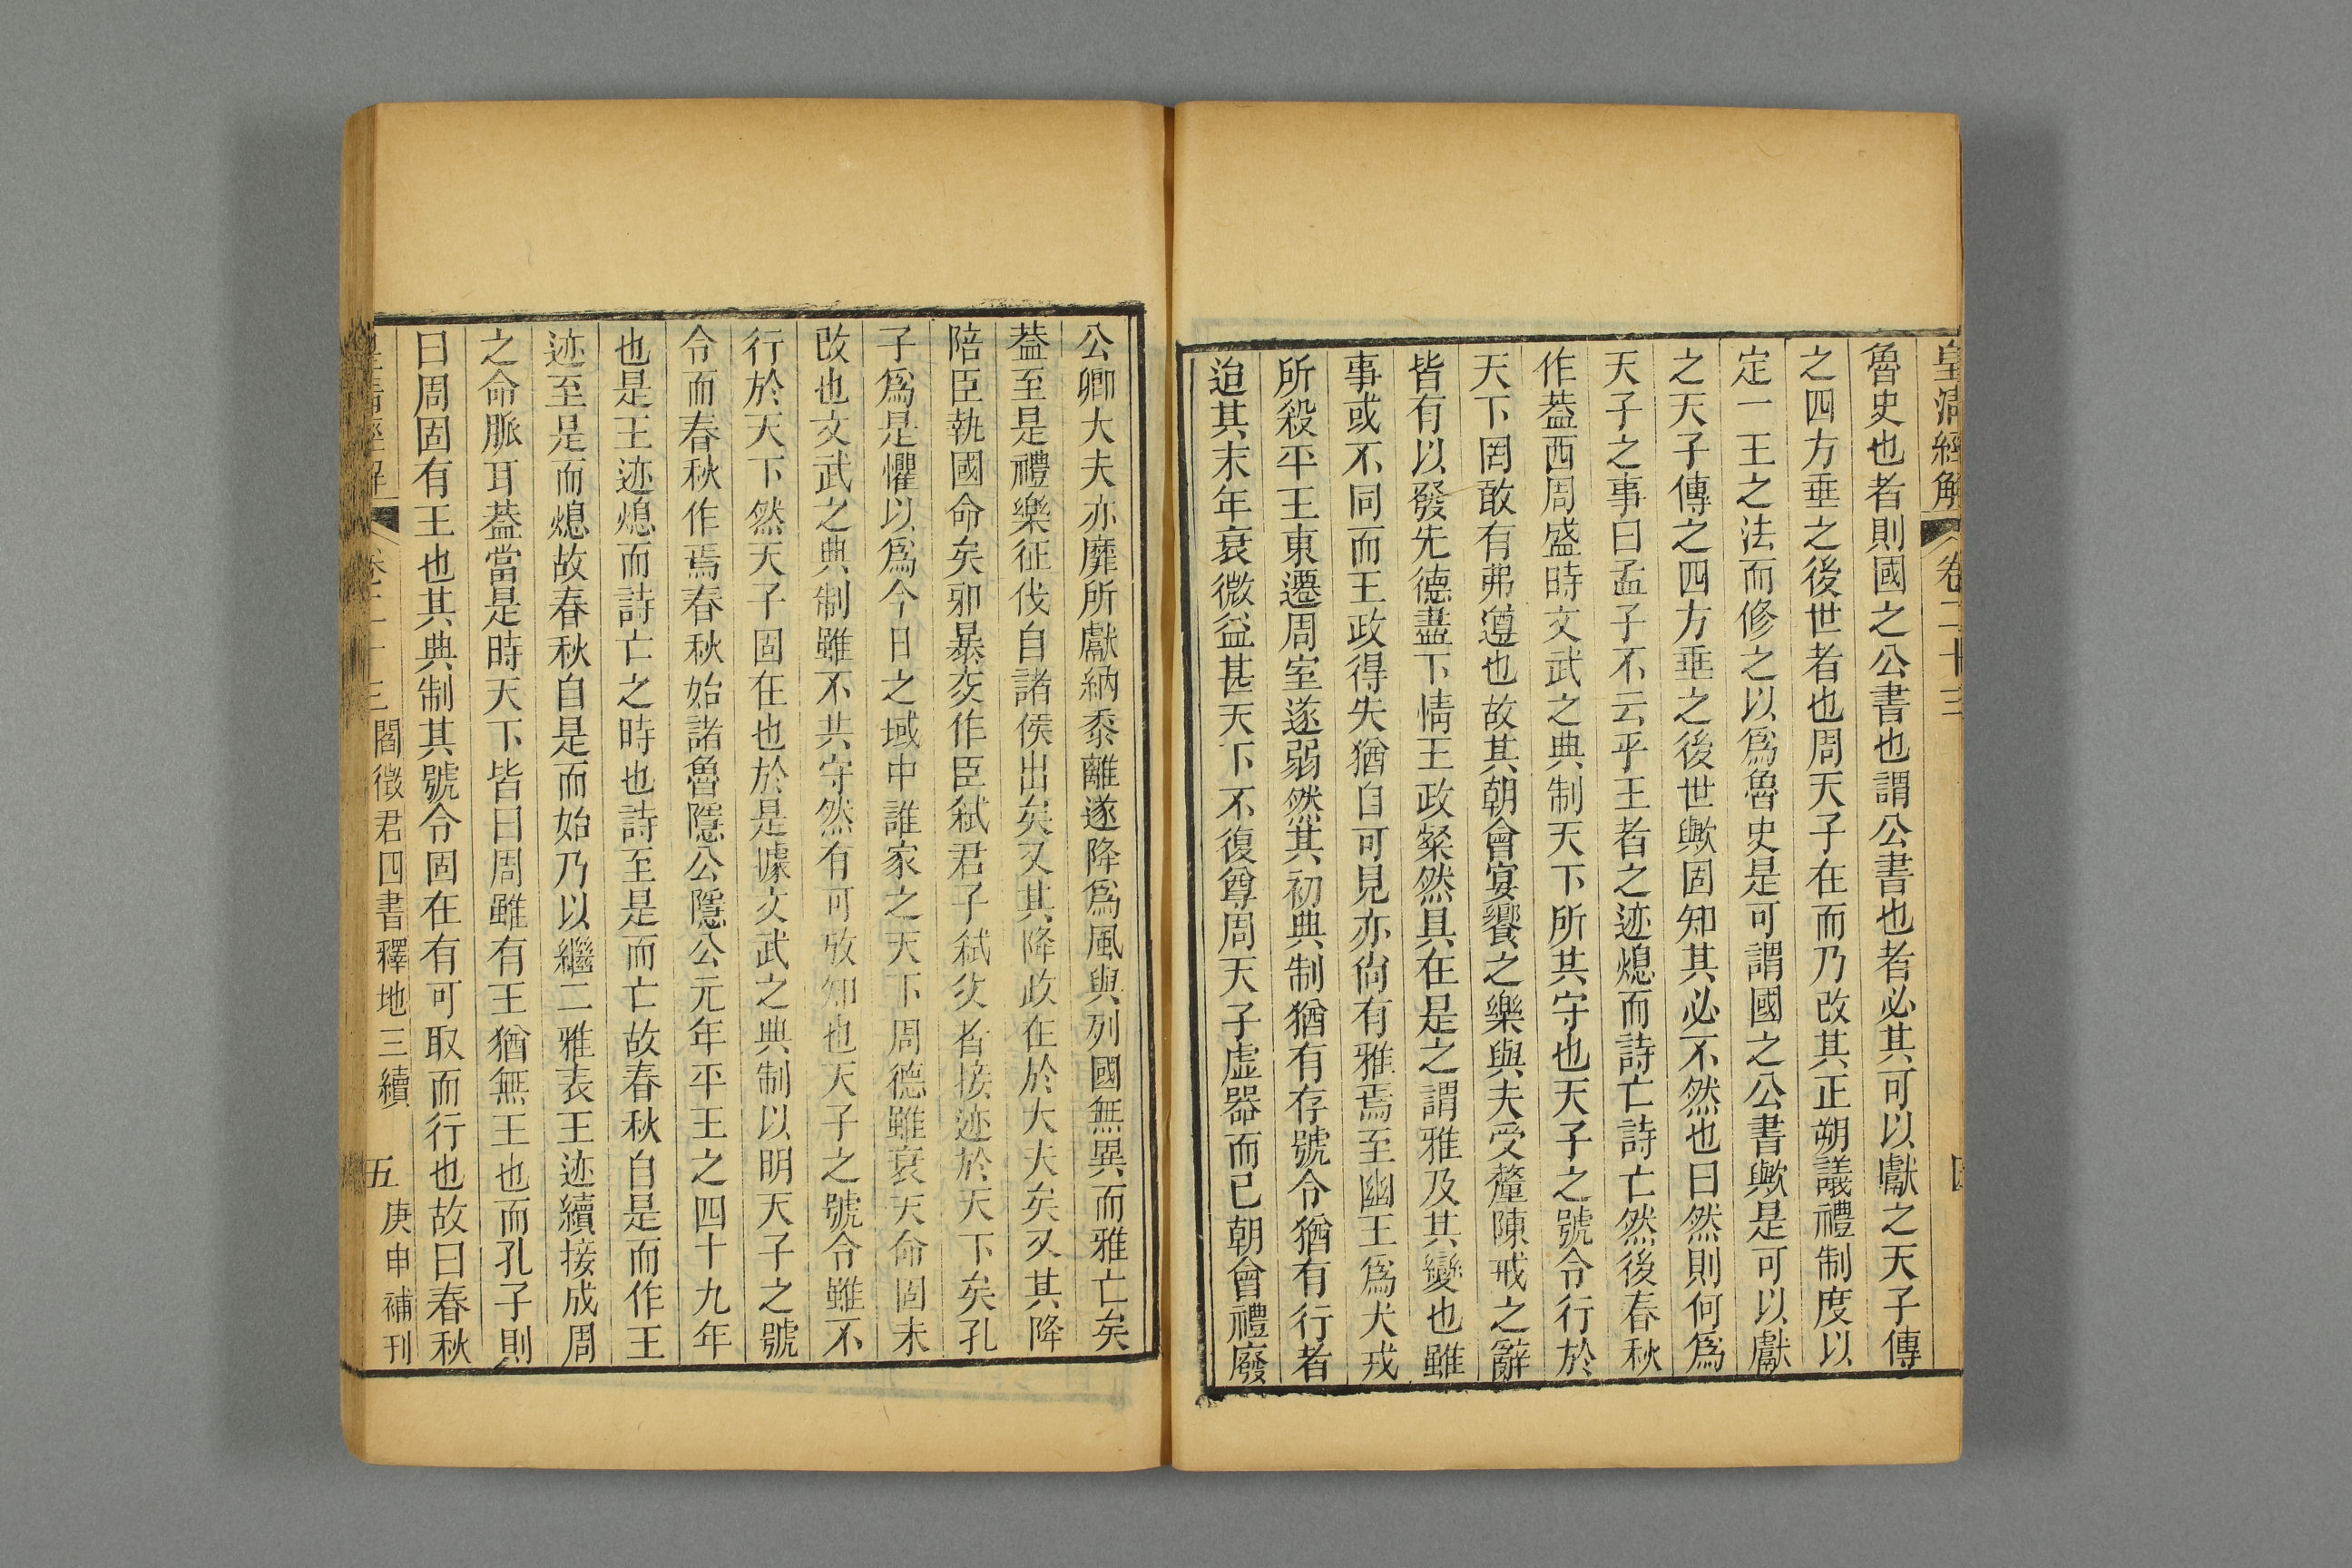 皇清經解 卷二十三
魯史也者則國之公書也謂公書也者必其可以獻之天子傳
之四方垂之後世者也周天子在而乃改其正朔議禮制度以
定一王之法而修之以爲魯史是可謂國之公書歟是可以獻
之天子傳之四方垂之後世歟固知其必不然也曰然則何爲
天子之事曰孟子不云乎王者之迹熄而詩亡詩亡然後春秋
作葢西周盛時文武之典制天下所共守也天子之號令行於
天下罔敢有弗遵也故其朝會宴饗之樂與夫受釐陳戒之辭
皆有以發先德盡下情王政粲然具在是之謂雅及其變也雖
事或不同而王政得失猶自可見亦尙有雅焉至幽王爲犬戎
所殺平王東遷周室遂弱然其初典制猶有存號令猶有行者
迨其末年衰微益甚天下不復尊周天子虛器而已朝會禮廢
公卿大夫亦靡所獻納黍離遂降爲風與列國無異而雅亡矣
葢至是禮樂征伐自諸侯出矣又其降政在於大夫矣又其降
陪臣執國命矣邪暴交作臣弑君子弑父者接迹於天下矣孔
子爲是懼以爲今日之域中誰家之天下周德雖衰天命固未
改也文武之典制雖不共守然有可攷知也天子之號令雖不
行於天下然天子固在也於是據文武之典制以明天子之號
令而春秋作焉春秋始諸魯隱公隱公元年平王之四十九年
也是王迹熄而詩亡之時也詩至是而亡故春秋自是而作王
迹至是而熄故春秋自是而始乃以繼二雅表王迹續接成周
之命脈耳葢當是時天下皆曰周雖有王猶無王也而孔子則
曰周固有王也其典制其號令固在有可取而行也故曰春秋
皇清經解 卷二十三 閻徵君四書釋地三續 五 庚申補刊